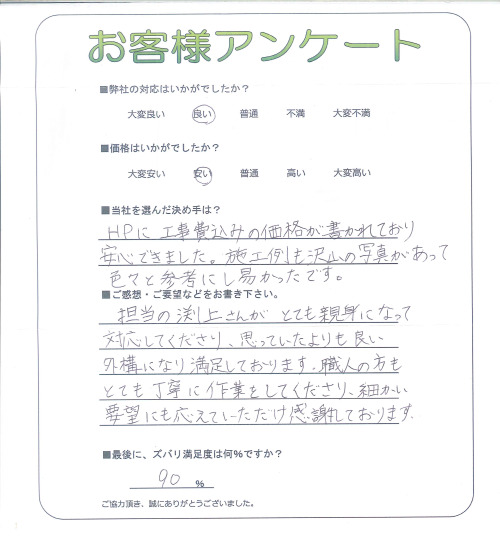 お客様アンケート
■弊社の対応はいかがでしたか？
大変良い 良い 普通 不満 大変不満
■価格はいかがでしたか？
大変安い 安い 普通 高い 大変高い
■当社を選んだ決め手は？
HPに工事費込みの価格が書かれており
安心できました。施工例も沢山の写真があって
色々と参考にし易かったです。
■ご感想・ご要望などをお書き下さい。
担当の渕上さんがとても親身になって
対応してくださり、思っていたよりも良い
外構になり満足しております。職人の方も
とても丁寧に作業をしてくださり、細かい
要望にも応えていただけ感謝しております。
■最後に、ズバリ満足度は何%ですか？
90 %
ご協力頂き、誠にありがとうございました。